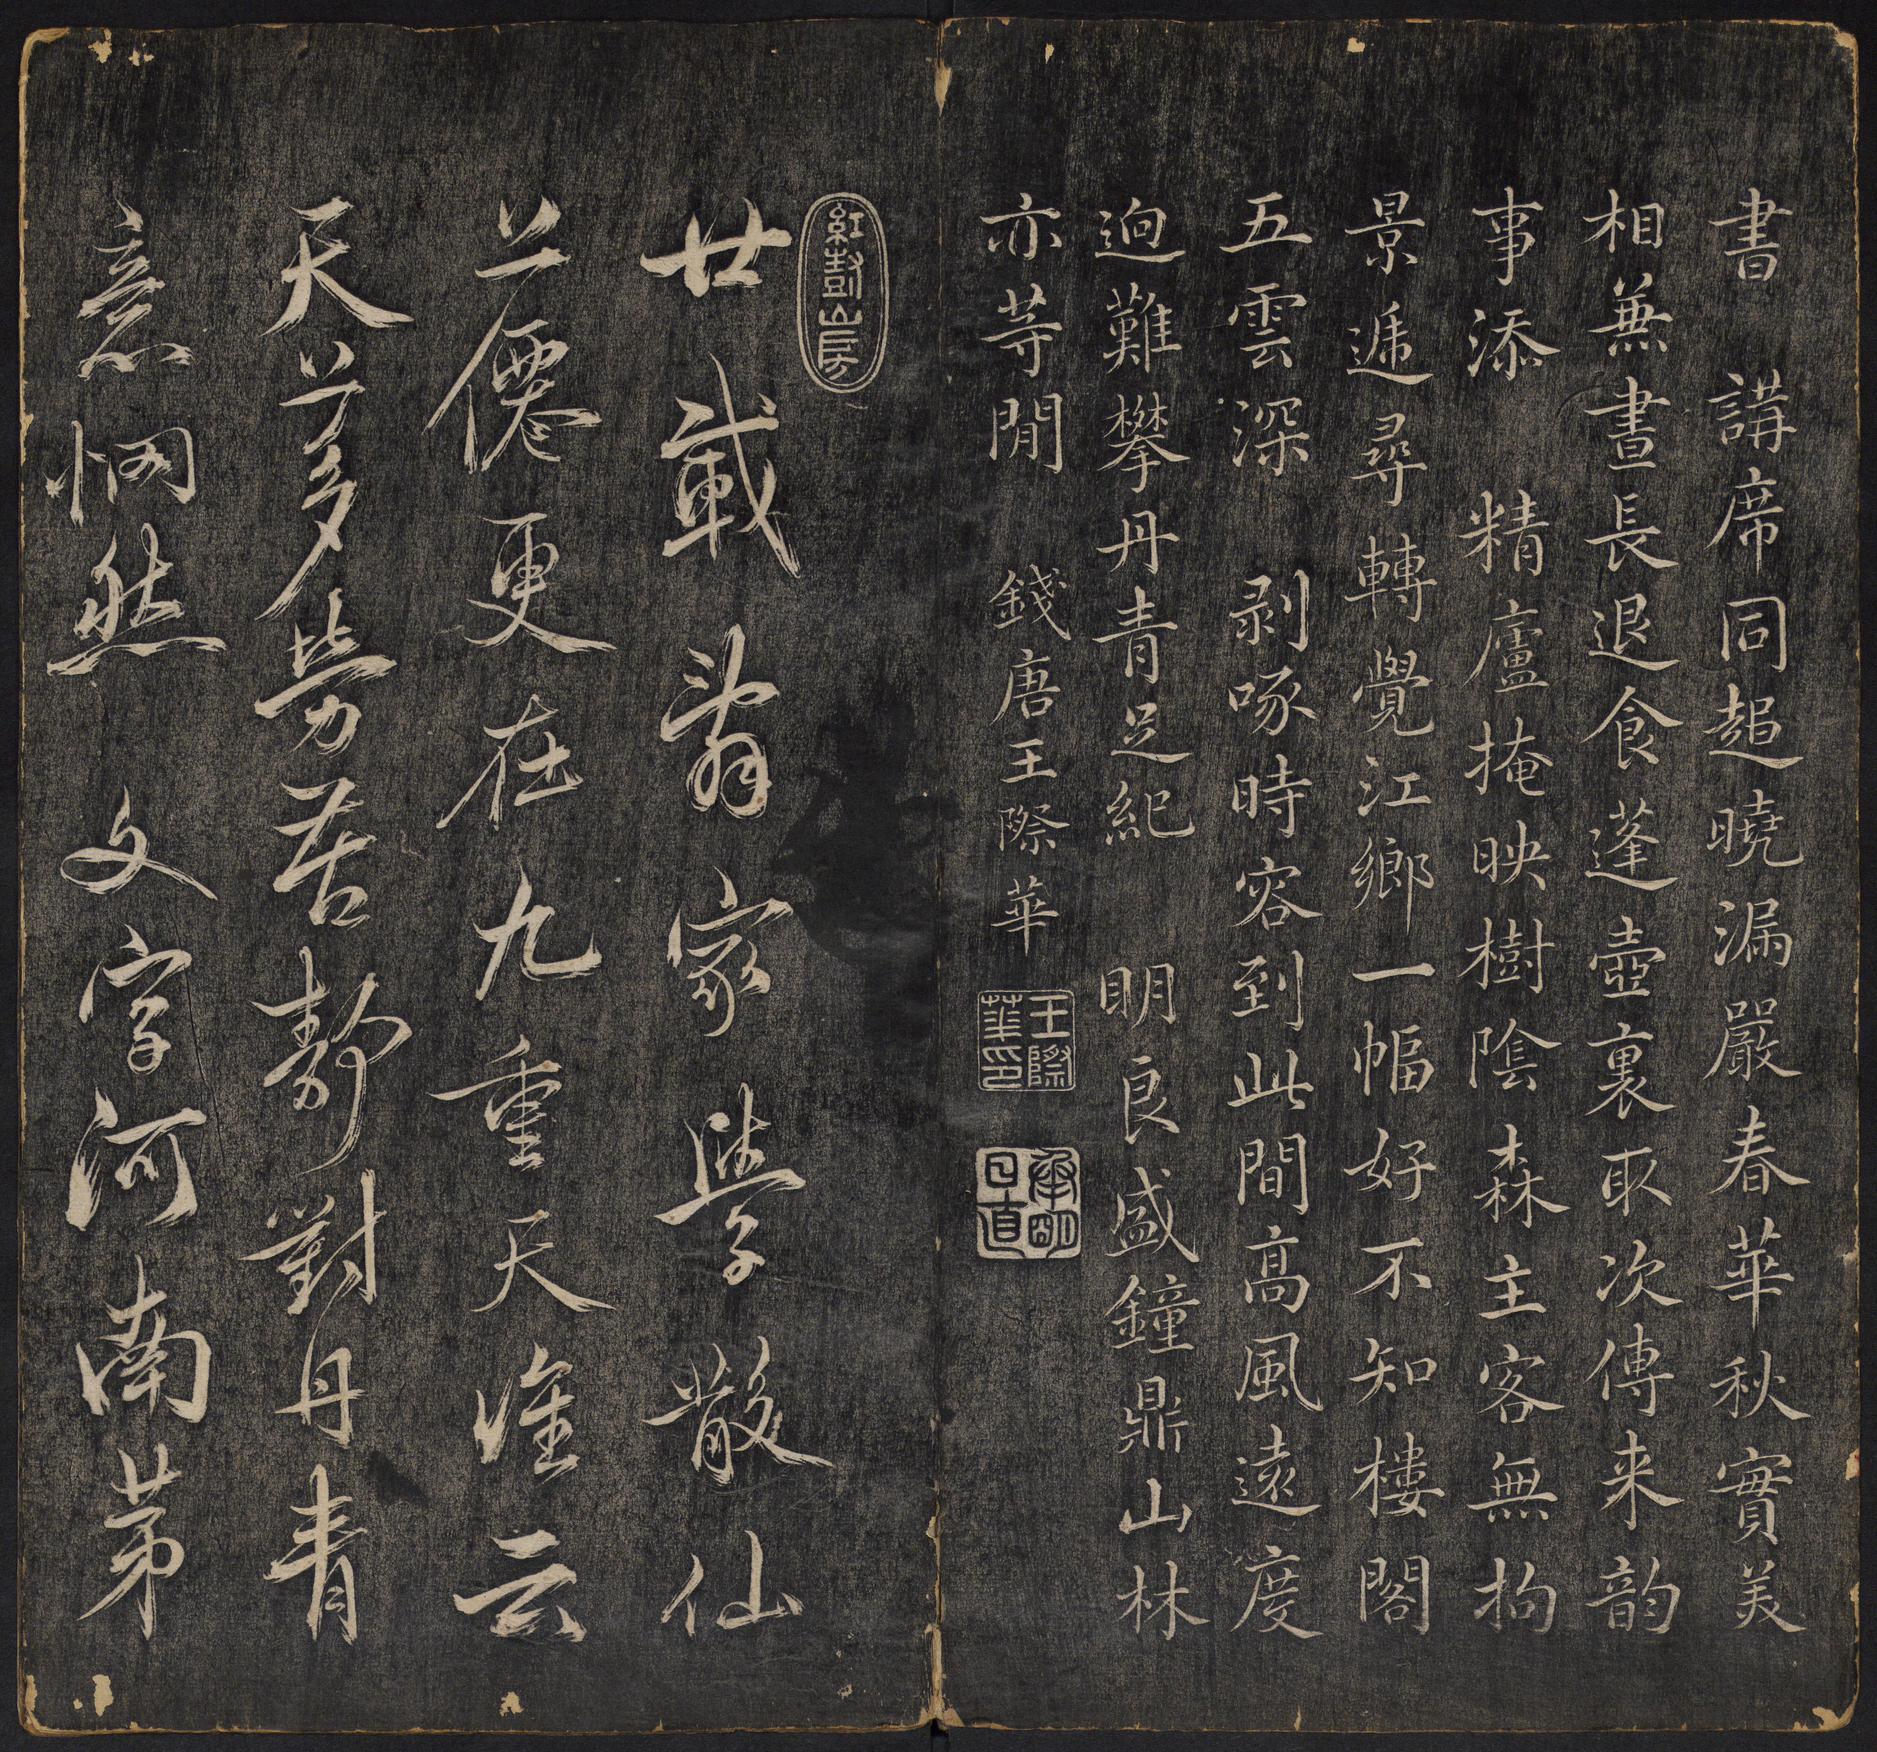 書　講席同趨曉漏嚴春華秋實美
相兼晝長退食蓬壺裏取次傳来韵
事添　精廬掩映樹陰森主客無拘
景遞尋轉覺江鄉一幅好不知樓閣
五雲深　剥啄時容到此間高風遠度
迥難攀丹青足紀　明良盛鐘鼎山林
亦等閒　錢唐王際華
王際華印
廿載翁家學散仙
僊更在九重天淮云
天
勞苦静對丹青
意惘然　文字河南第